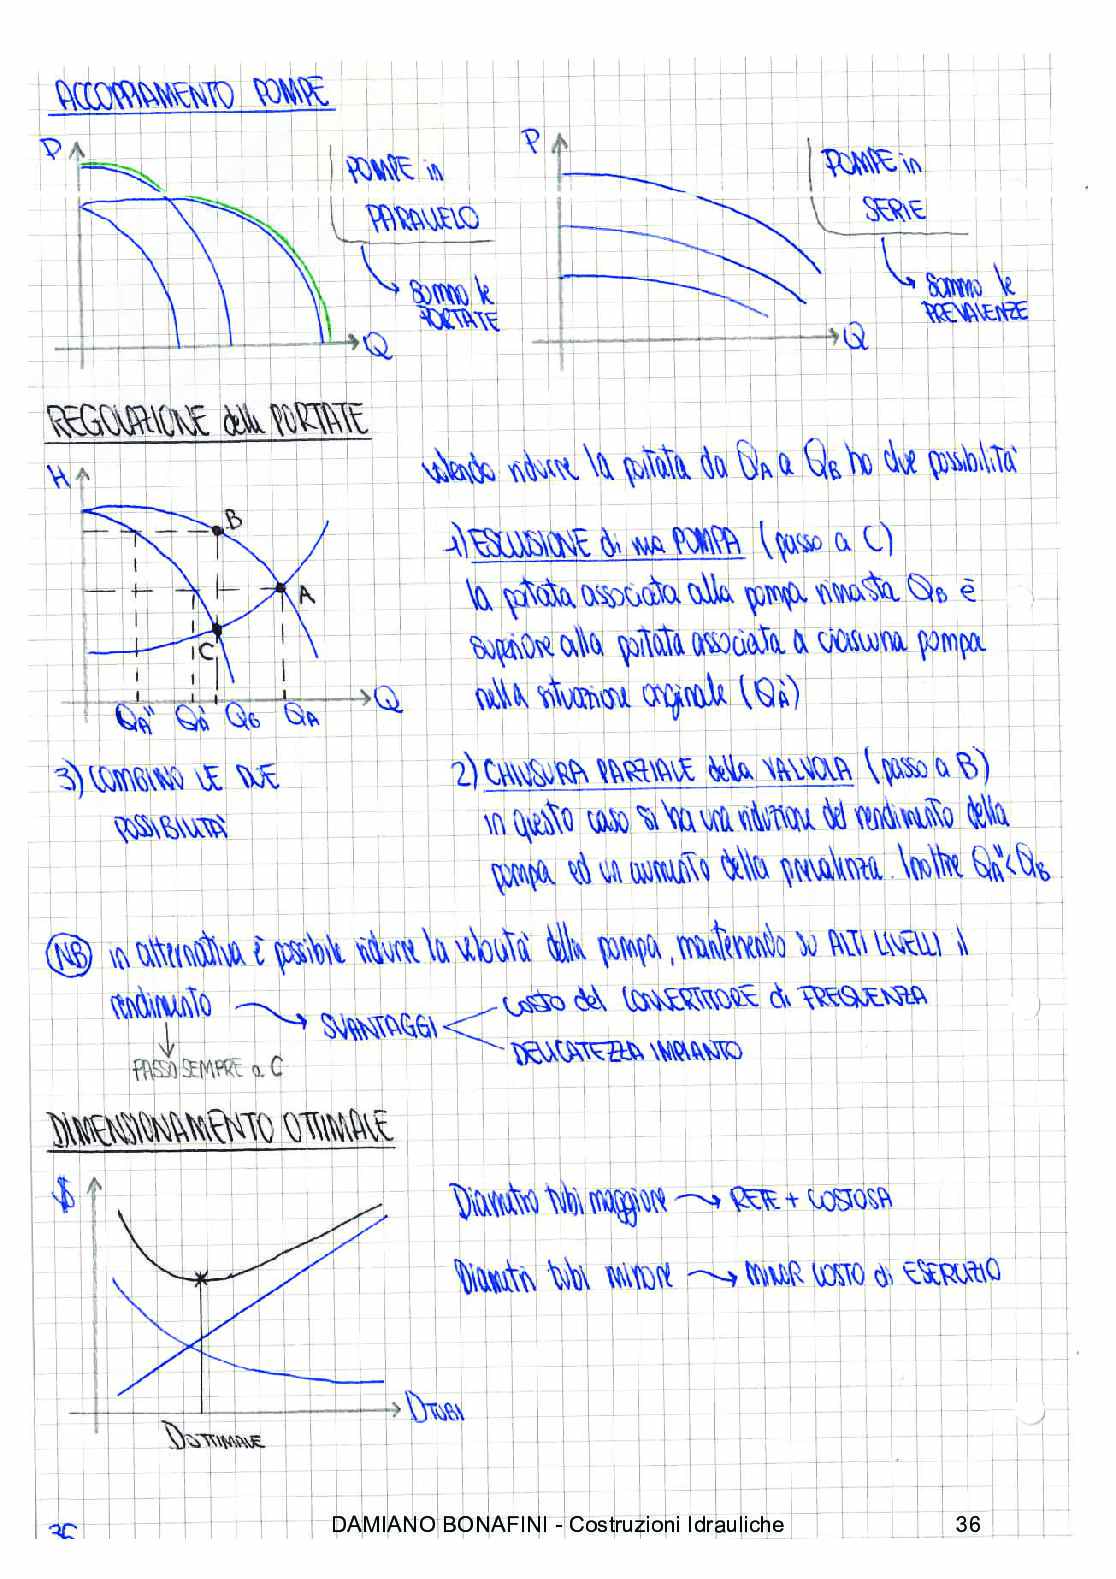 ACCOPPIAMENTO POMPE
P
POMPE in
PARALLELO
sommo le
PORTATE
Q
P
POMPE in
SERIE
sommo le
PREVALENZE
Q
REGOLAZIONE delle PORTATE
H
B
A
C
QA" QA' QB QA
Q
volendo ridurre la portata da QA a QB ho due possibilità
1) ESCLUSIONE di una POMPA (passo a C)
la portata associata alla pompa rimasta QB è
superiore alla portata associata a ciascuna pompa
nella situazione originale (QA')
3) COMBINO LE DUE
POSSIBILITA'
2) CHIUSURA PARZIALE della VALVOLA (passo a B)
in questo caso si ha una riduzione del rendimento della
pompa ed un aumento della prevalenza. Inoltre QA"<QB
NB in alternativa è possibile ridurre la velocità della pompa, mantenendo su ALTI LIVELLI il
rendimento
SVANTAGGI
COSTO del CONVERTITORE di FREQUENZA
DELICATEZZA IMPIANTO
PASSO SEMPRE a C
DIMENSIONAMENTO OTTIMALE
$
Diametro tubi maggiore → RETE + COSTOSA
Diametri tubi minore → MINOR COSTO di ESERCIZIO
DTUBI
DOTTIMALE
36
DAMIANO BONAFINI - Costruzioni Idrauliche
36